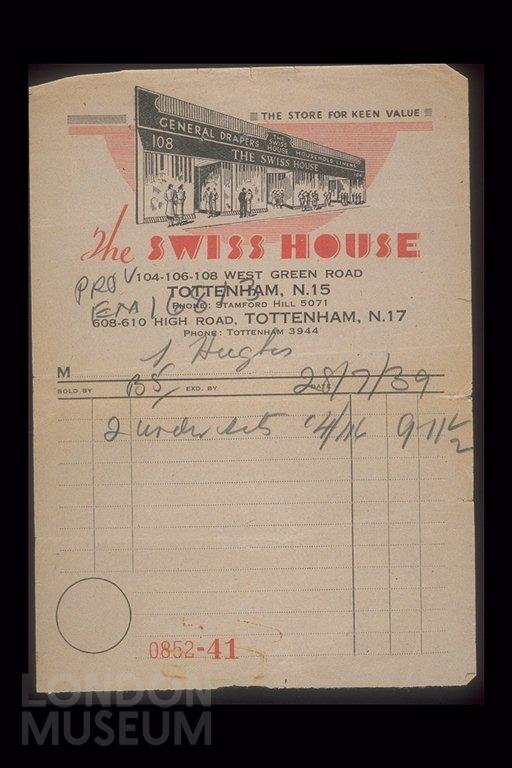 THE STORE FOR KEEN VALUE
GENERAL DRAPERS THE SWISS HOUSE HOUSEHOLD LINENS
108 THE SWISS HOUSE 104
The SWISS HOUSE
104-106-108 WEST GREEN ROAD
TOTTENHAM, N.15
PHONE: STAMFORD HILL 5071
608-610 HIGH ROAD, TOTTENHAM, N.17
PHONE: TOTTENHAM 3944
PROV
EM
Hughes
M
SOLD BY BS EXD. BY DATE 28/7/39
2 under sets 4/11½ 9-11½
0852-41
LONDON
MUSEUM